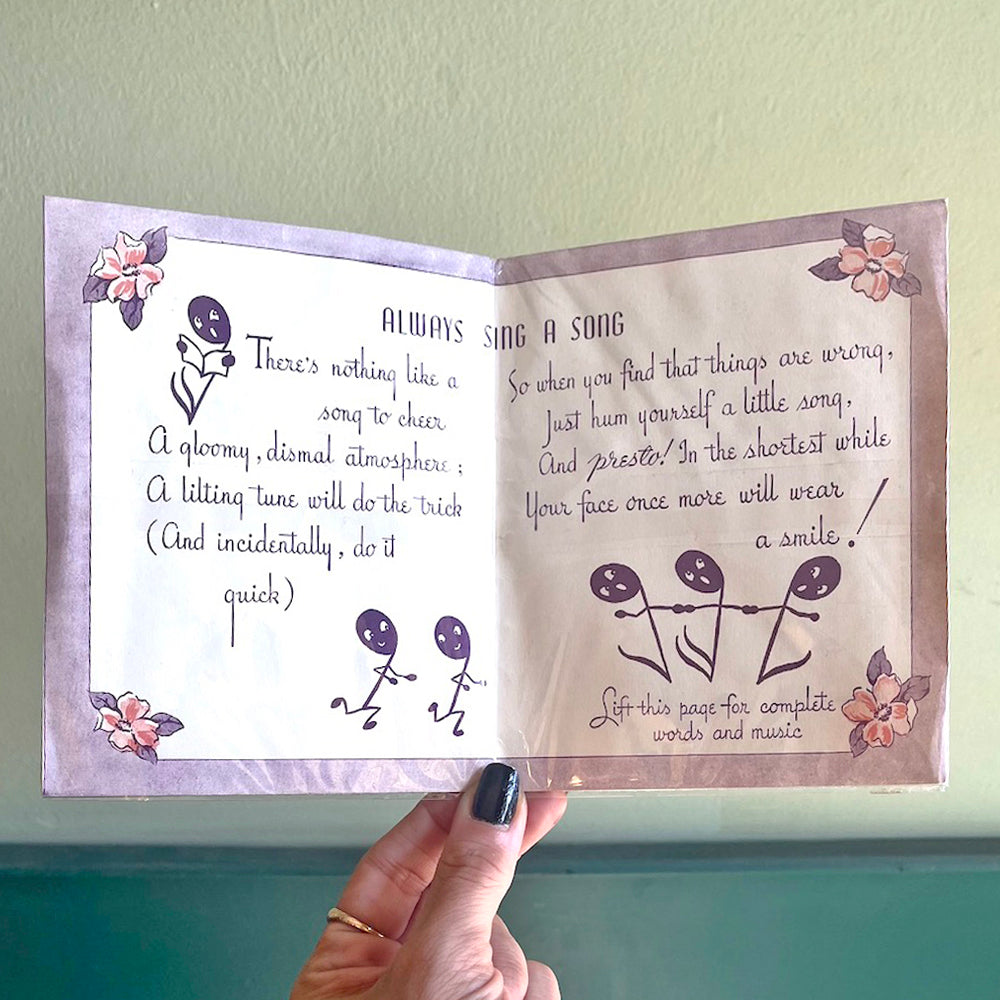 ALWAYS SING A SONG
There's nothing like a
song to cheer
A gloomy, dismal atmosphere;
A lilting tune will do the trick
(And incidentally, do it
quick)
So when you find that things are wrong,
Just hum yourself a little song,
And presto! In the shortest while
Your face once more will wear
a smile!
Lift this page for complete
words and music